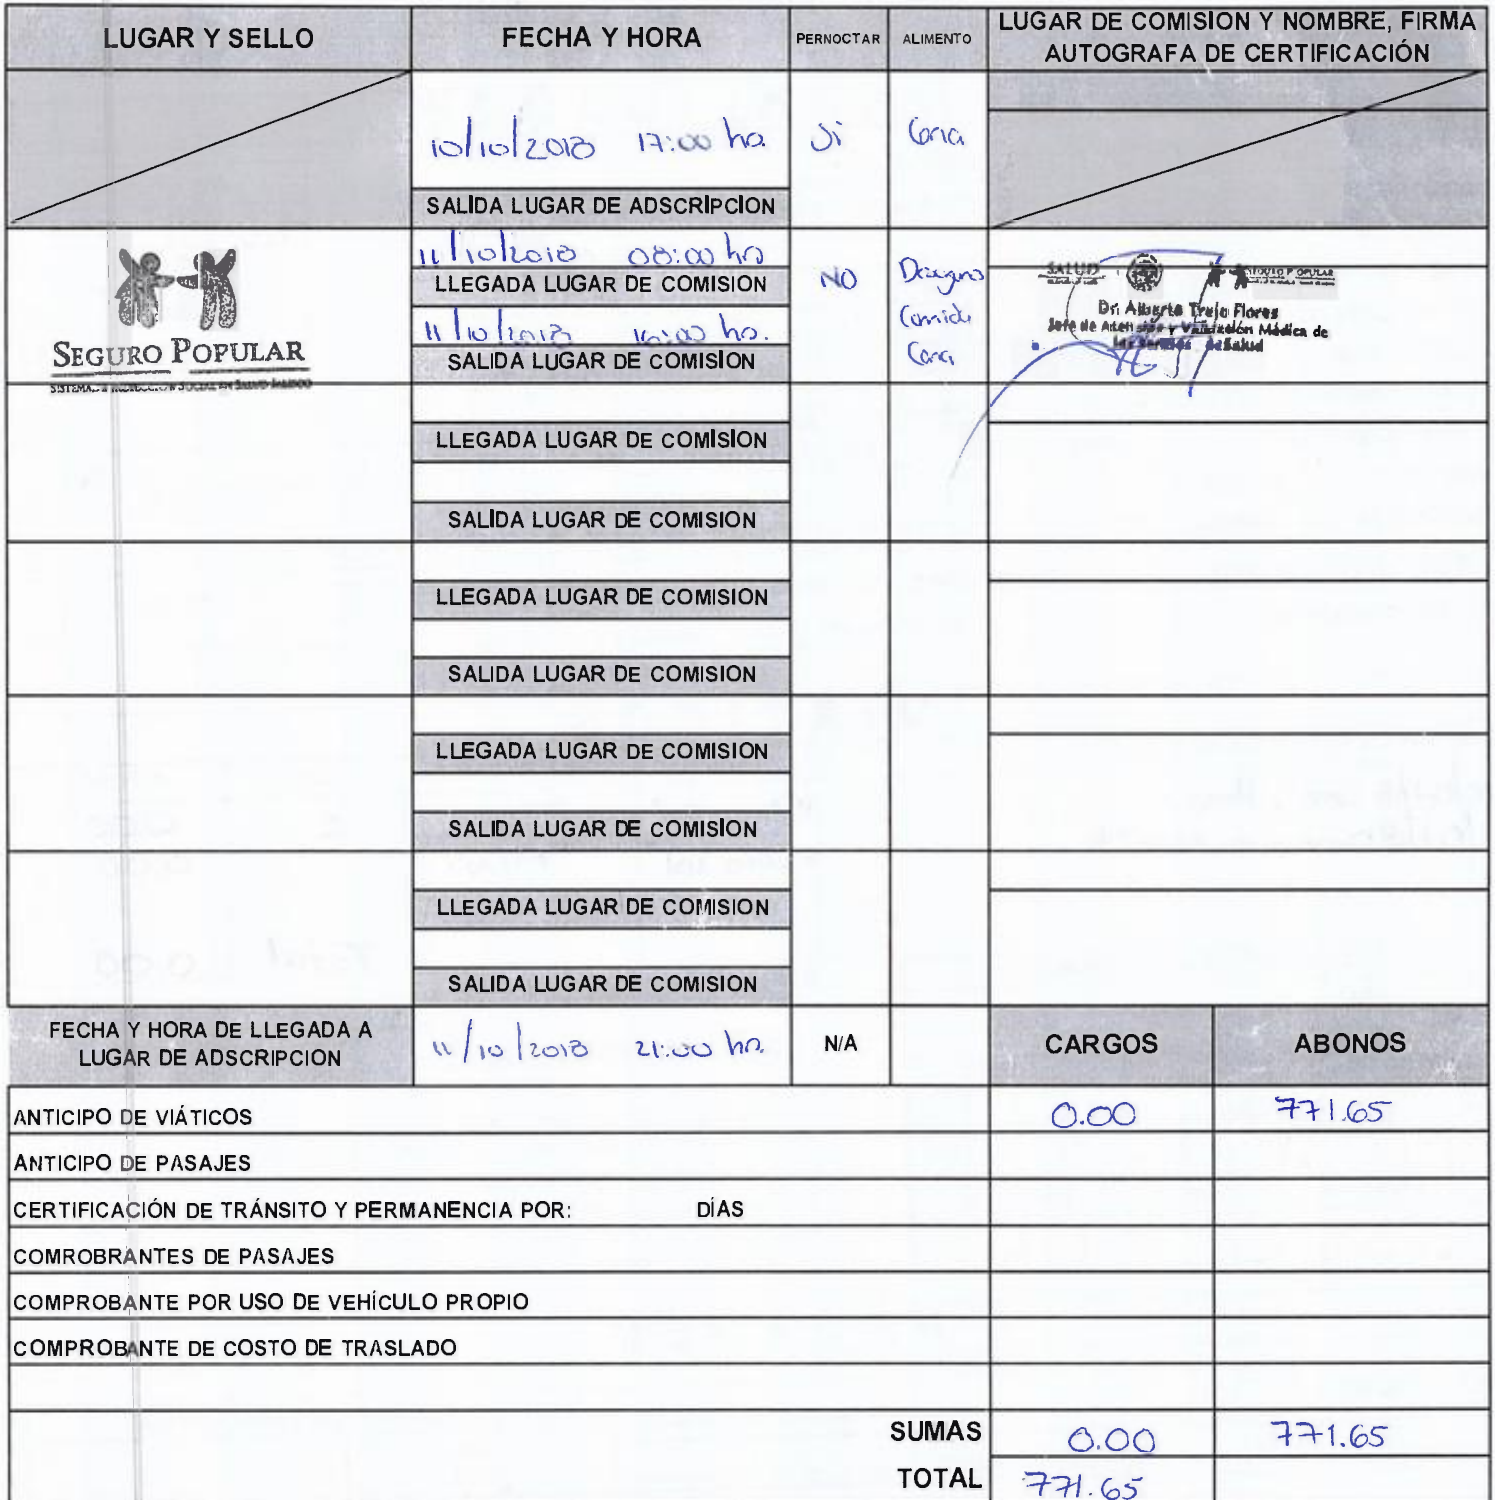 LUGAR Y SELLO
FECHA Y HORA
PERNOCTAR
ALIMENTO
LUGAR DE COMISION Y NOMBRE, FIRMA
AUTOGRAFA DE CERTIFICACIÓN
10/10/2018 17:00 hs.
Si
Cena
SALIDA LUGAR DE ADSCRIPCION
11/10/2018 08:00 hs
LLEGADA LUGAR DE COMISION
11/10/2018 16:00 hs.
SALIDA LUGAR DE COMISION
NO
Desayuno
Comida
Cena
SEGURO POPULAR
SALUD
Dr. Alberto Trejo Flores
Jefe de Atención y Validación Médica de
los Servicios de Salud
LLEGADA LUGAR DE COMISION
SALIDA LUGAR DE COMISION
LLEGADA LUGAR DE COMISION
SALIDA LUGAR DE COMISION
LLEGADA LUGAR DE COMISION
SALIDA LUGAR DE COMISION
LLEGADA LUGAR DE COMISION
SALIDA LUGAR DE COMISION
FECHA Y HORA DE LLEGADA A
LUGAR DE ADSCRIPCION
11/10/2018 21:00 hs.
N/A
CARGOS
ABONOS
ANTICIPO DE VIÁTICOS 0.00 771.65
ANTICIPO DE PASAJES
CERTIFICACIÓN DE TRÁNSITO Y PERMANENCIA POR: DÍAS
COMROBRANTES DE PASAJES
COMPROBANTE POR USO DE VEHÍCULO PROPIO
COMPROBANTE DE COSTO DE TRASLADO
SUMAS 0.00 771.65
TOTAL 771.65